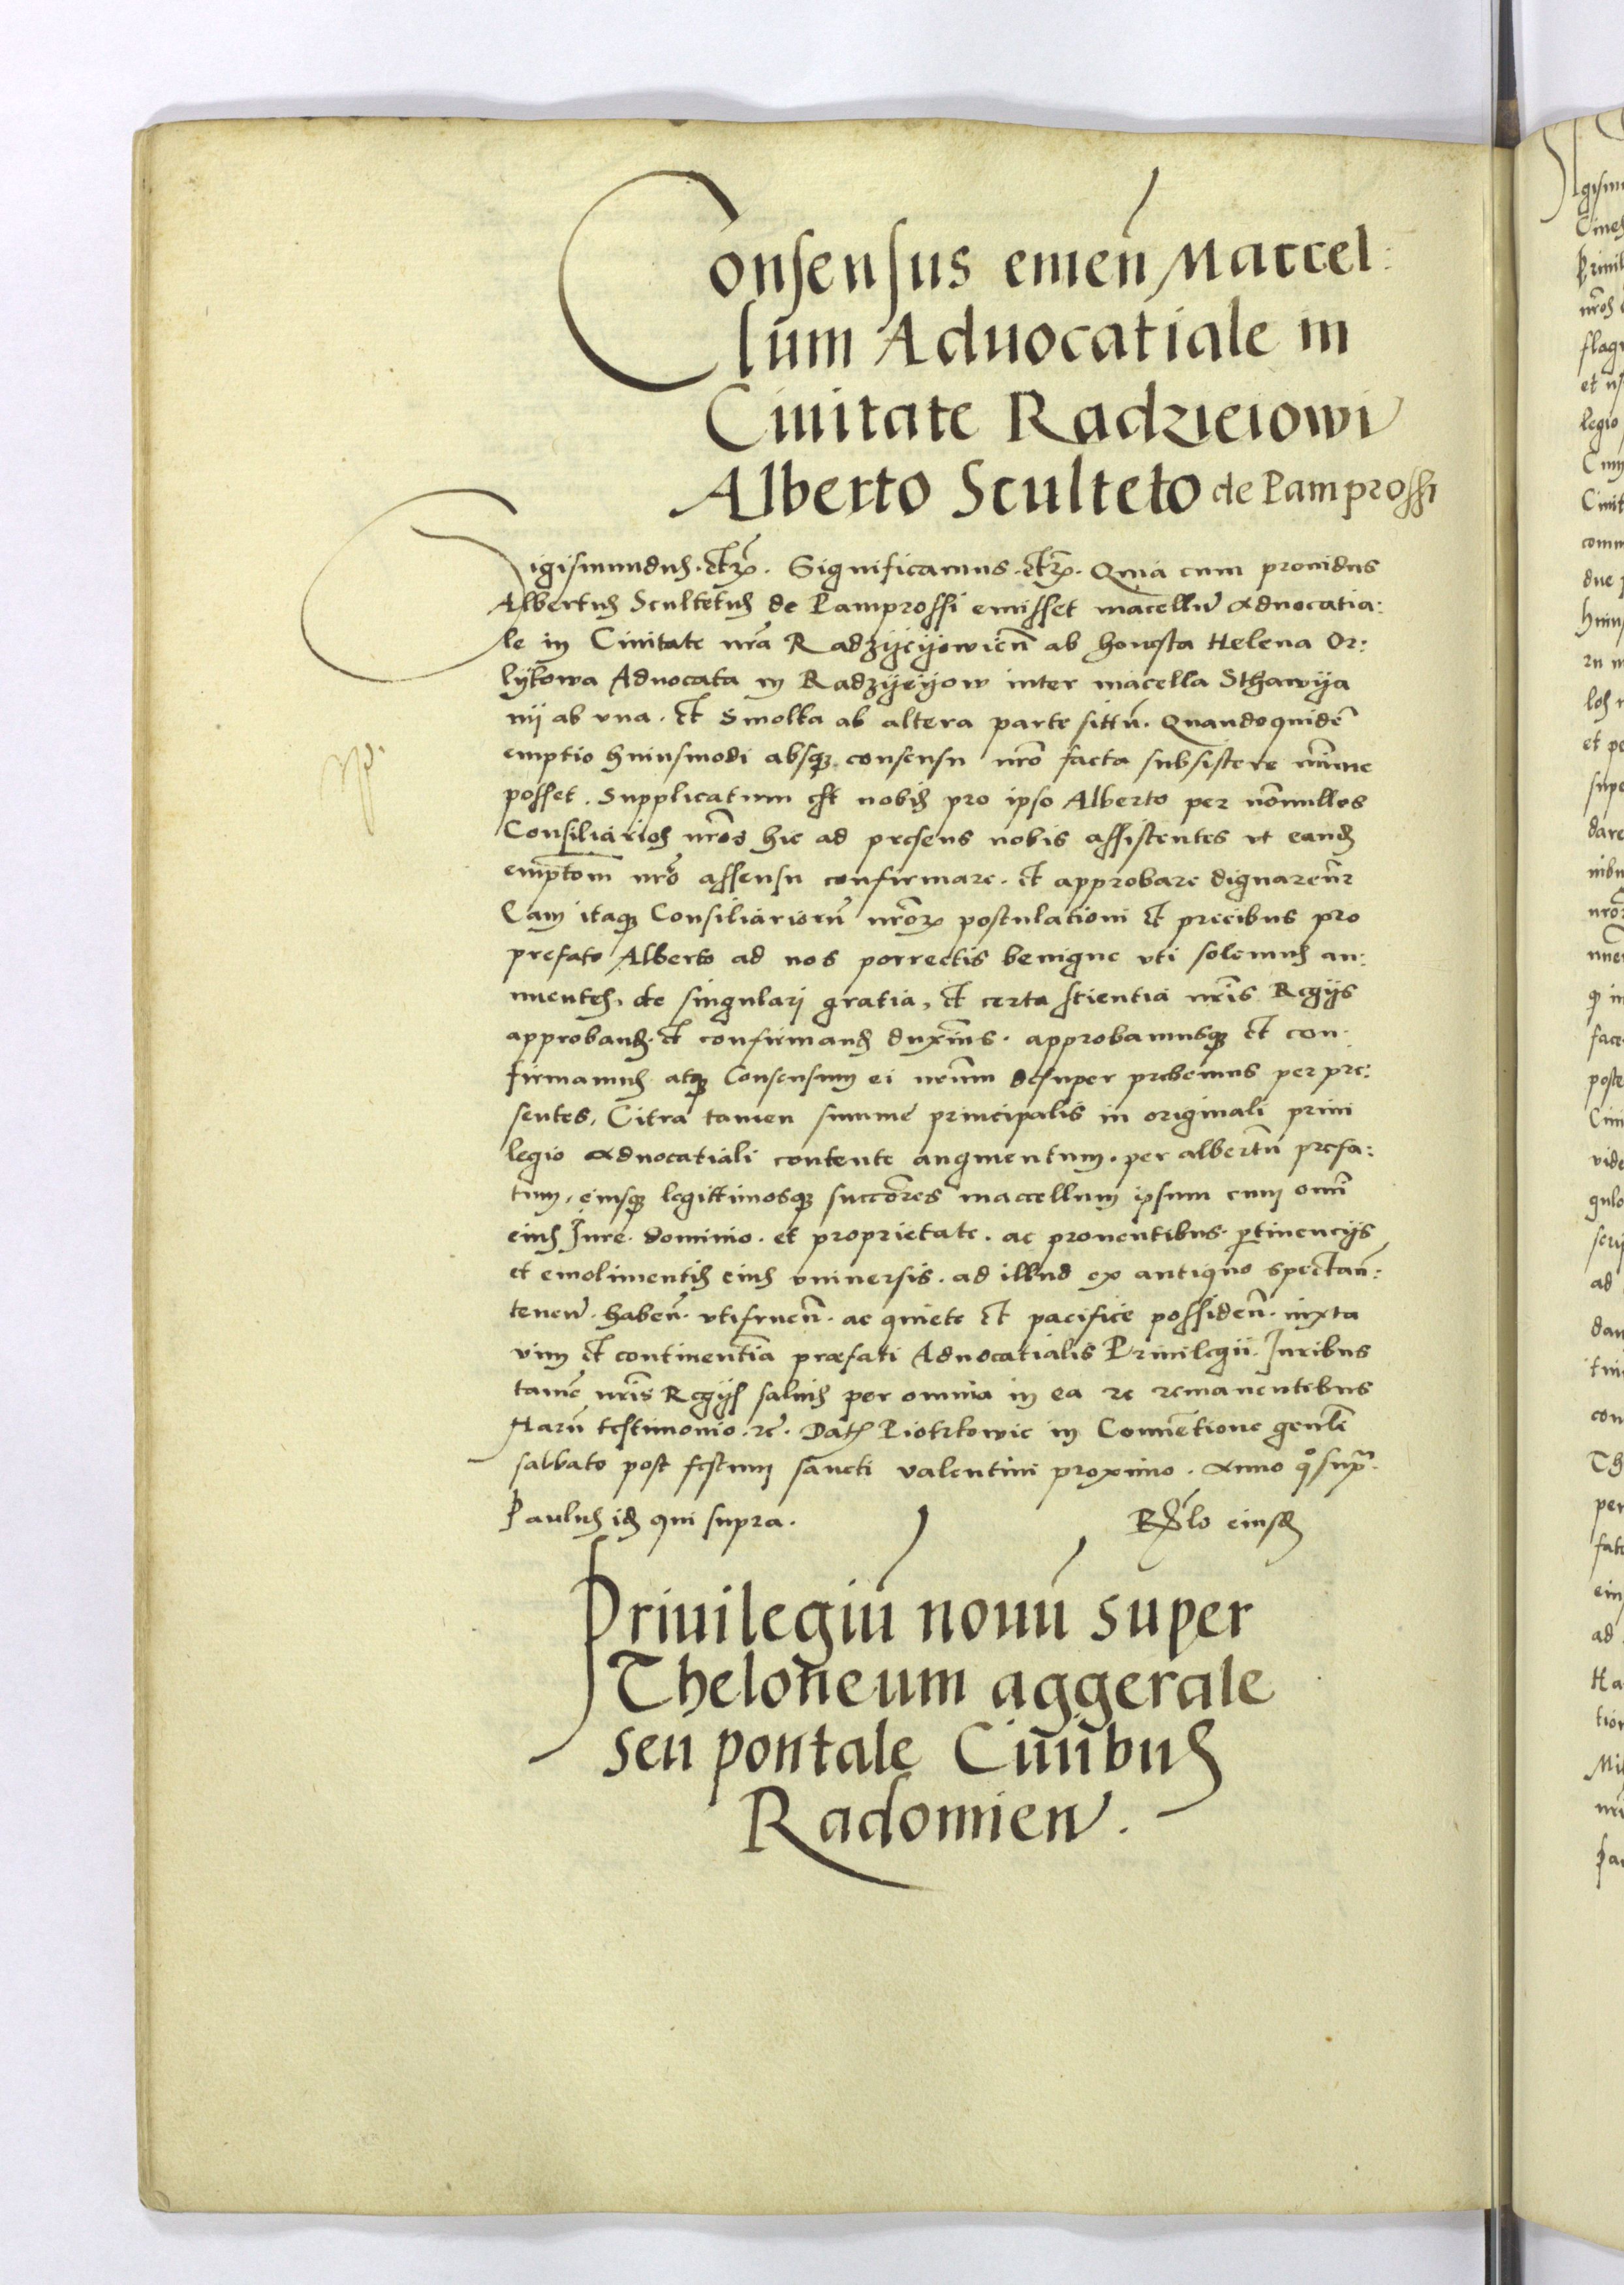 Consensus emen̄ Maccel:
lum Aduocatiale in
Ciuitate Radzieiowien̄
Alberto Sculteto de Pamprossi
Sigismundus. etc̄. Significamus. etc̄. Quia cum prouidus
Albertus Scultetus de Pamprossi emisset macellū Aduocatia:
le in Ciuitate nr̄a Radzyeyowien̄ ab honesta Helena Or:
lykowa Aduocata in Radzyeyow inter macella Sthawya
nij ab vna. et Smolka ab altera parte sittū. Quandoquidē
emptio huiusmodi absq₃ consensu nr̄o facta subsistere minime
posset. Supplicatum est nobis pro ipso Alberto per nōnullos
Consiliarios nr̄os hic ad presens nobis assistentes vt eandē
emptōm nr̄o assensu confirmare. et approbare dignaremr̄
Cum itaq₃ Consiliariorū nr̄orꝝ postulationi et precibus pro
prefato Alberto ad nos porrectis benigne vti solemus an:
nuentes. de singulari gratia, et certa scientia nr̄is Regijs
approband. et confirmand duximus. approbamusq₃ et con:
firmamus atq₃ Consensum ei nr̄um desuper prebemus per pre:
sentes, Citra tamen summe principalis in originali priui
legio Aduocatiali contente augmentum. per albertū prefa:
tum, eiusq₃ legittimosq₃ succōres maccellum ipsum cum omī
eius Iure. dominio. et proprietate. ac prouentibus. ꝑtinencijs
et emolimentis eius vniuersis. ad illud ex antiquo spectan̄:
tenen̄. haben̄. vtifruen̄. ac quiete et pacifice possiden̄. iuxta
vim et continentia̅ præfati Aduocatialis Priuilegii. Iuribus
tamē nr̄is Regijs saluis per omnia in ea re remanentibus
Harū testimonio. rc̄. Datꝭ Piotrkowie in Conuētione genl̄i
sabbato post festum sancti valentini proximo. Anno qͦ supr̄.
Paulus idē qui supra. Rl̄o eiusdē
Priuilegiū nouū super
Theloneum aggerale
seu pontale Ciuibus
Radomien̄.